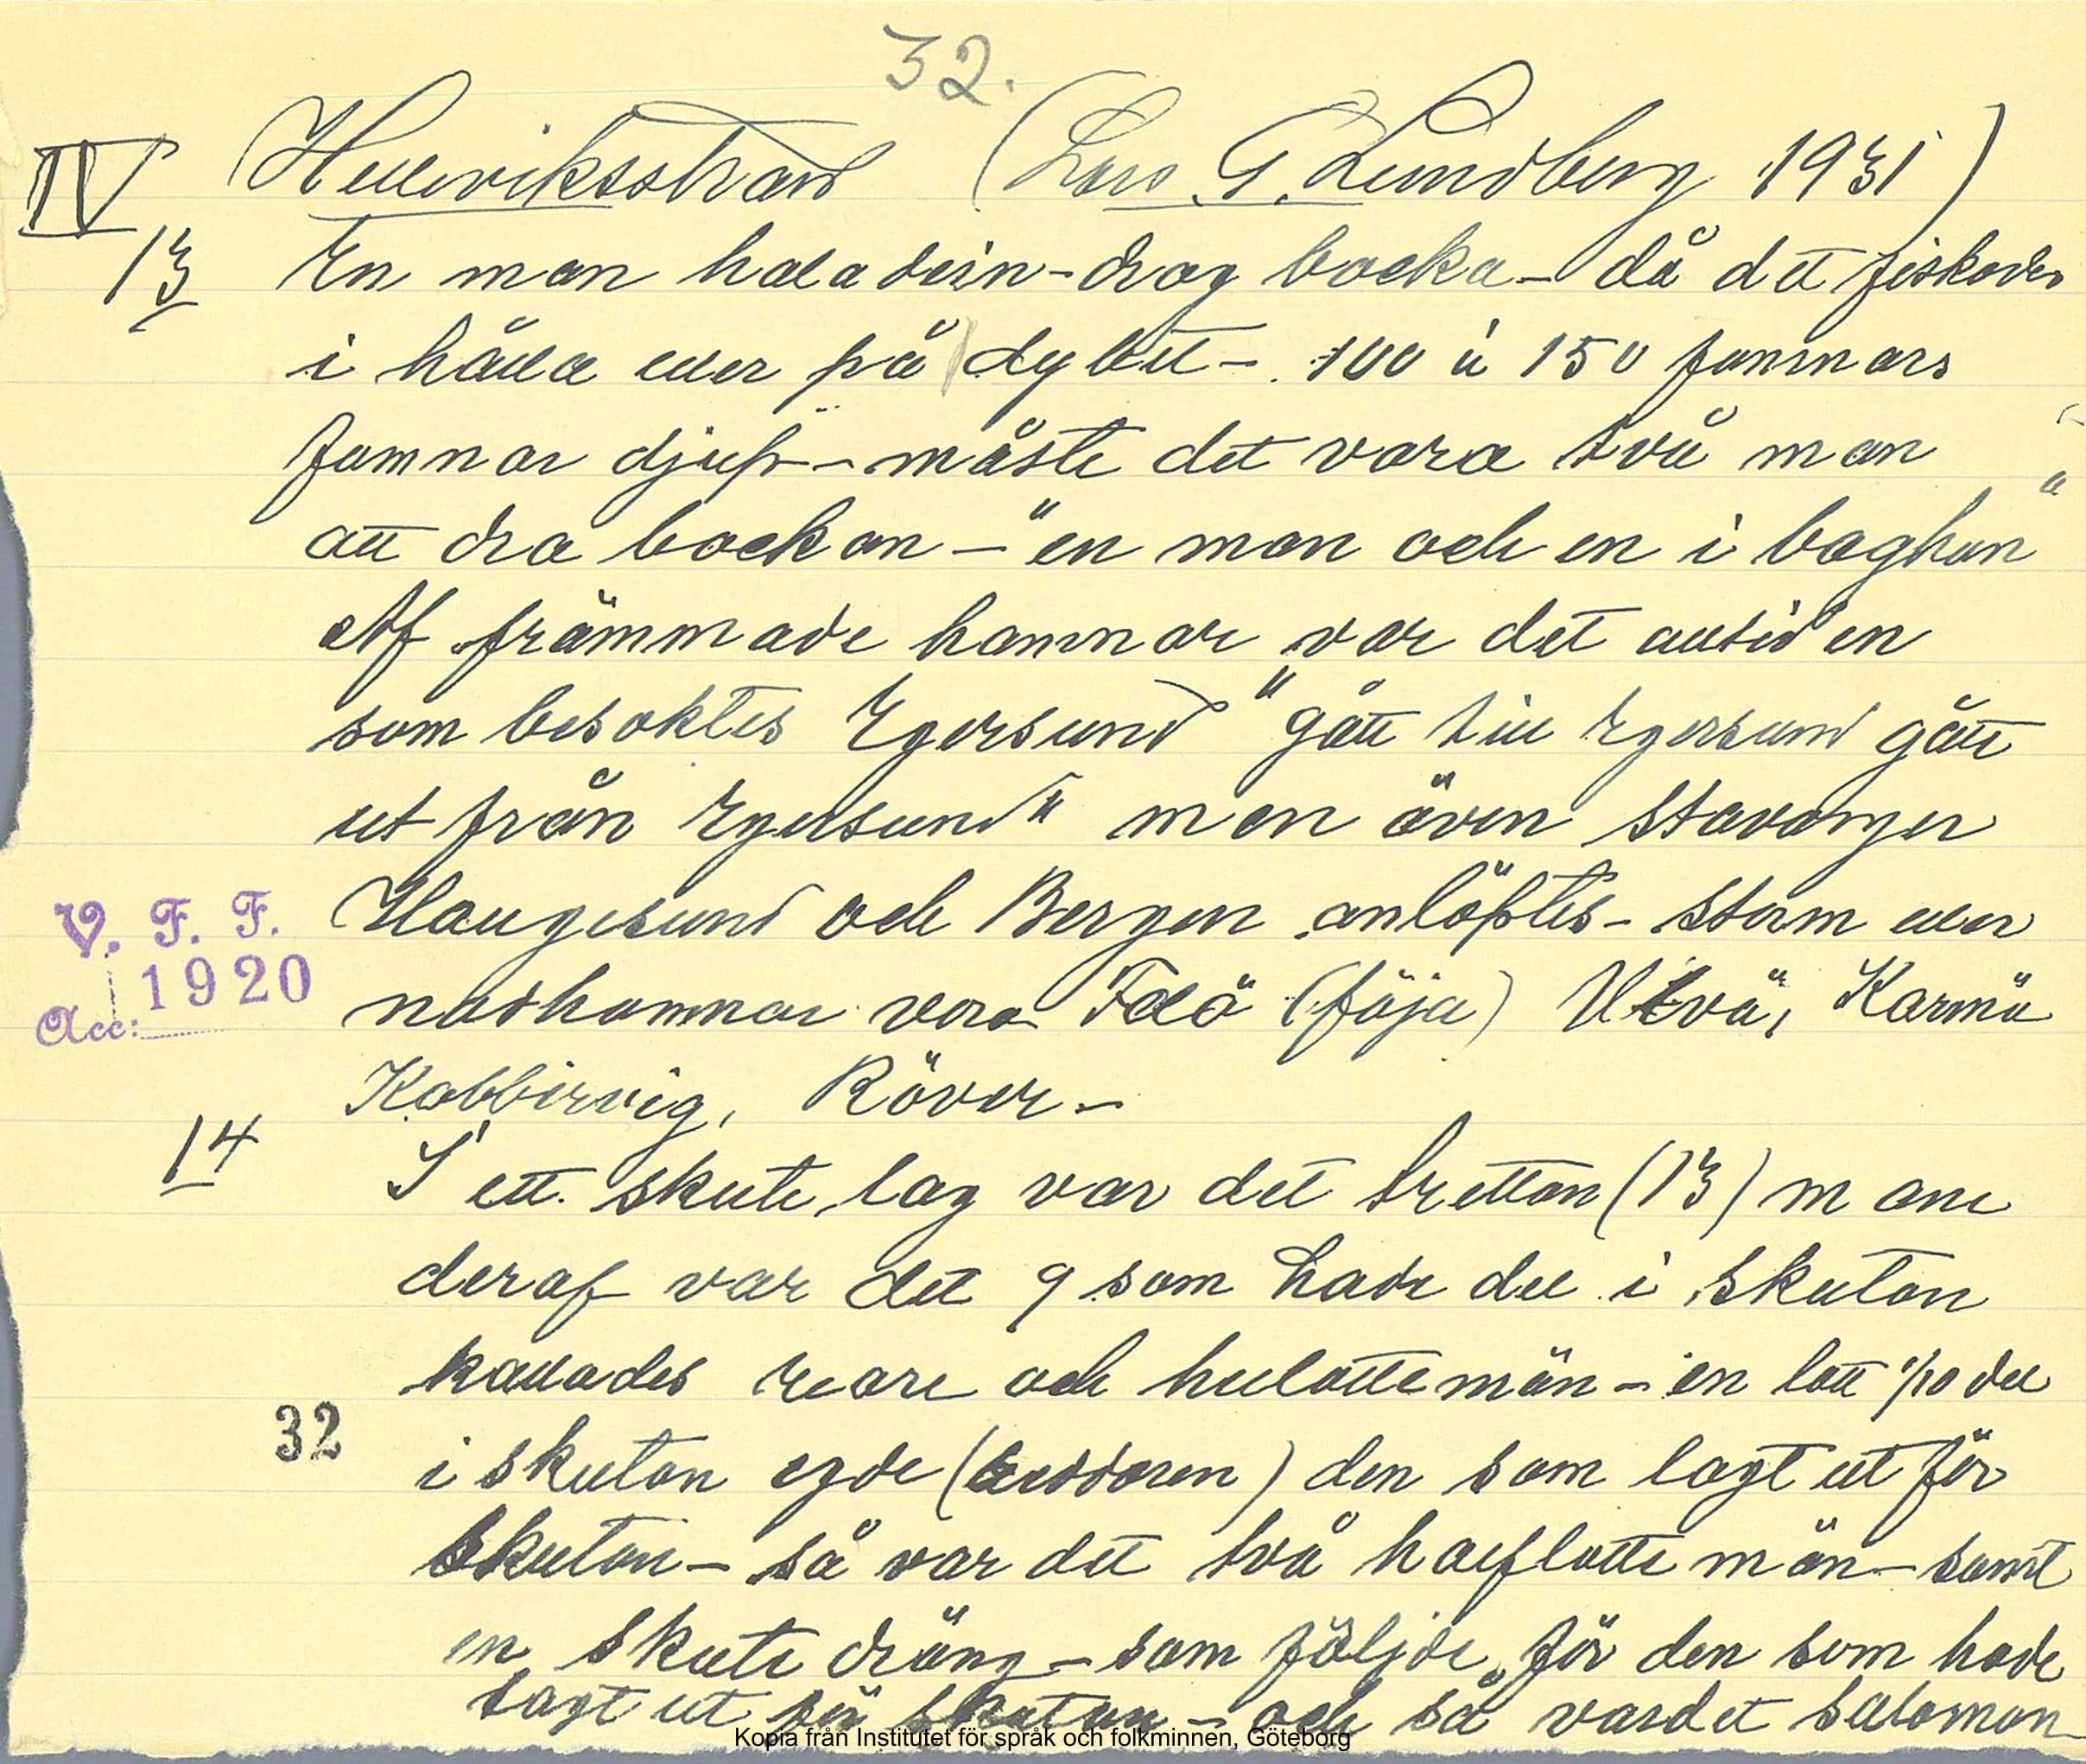 32.
IV Helleviksstrand (Lars G. Lundberg 1931)
13 En man hala dein - drog backa - då det fiskades
i hålla eller på dybet - 100 à 150 famnars
famnar djup - måste det vara två man
att dra backan - "en man och en i baghan"
Af främmade hamnar var det alltid en
som besoktes Egersund "gått till Egersund gått
ut från Egersund" men även Stavanger
Haugesund och Bergen anlöptes - storm eller
nödhamnar vora Feö (föja) Utvä, Karmö
Kobbirvig, Röver -
V. F. F.
1920
Acc:
14 I ett skute, lag var det tretton (13) man
deraf var det 9 som hade del i skutan
kallades reare och hellottemän - en lott 1/10 del
i skutan egde ( ) den som lagt ut för
32
skutan - så var det två halflotte män - samt
en skute dräng - som följde för den som hade
lagt ut för skutan - och så var det salomon
Kopia från Institutet för språk och folkminnen, Göteborg